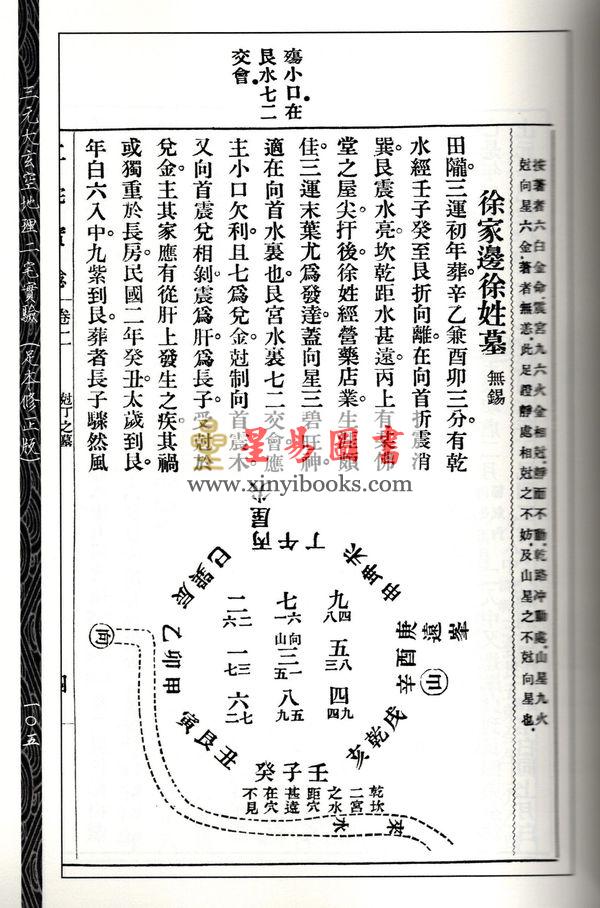 按著者六白金命震宮九六火金相尅靜而不動乾路冲動處山星九火
尅向星六金著者無恙此足證靜處相尅之不妨及山星之不尅向星也
徐家邊徐姓墓 無錫
殤小口在
艮水七二
交會。
田隴三運初年葬辛乙兼酉卯三分有乾
水經壬子癸至艮折向離在向首折震消
巽艮震水亮坎乾距水甚遠丙上有佛
堂之屋尖扞後徐姓經營藥店業生涯頗
佳三運末葉尤爲發達蓋向星三碧旺神
適在向首水裏也艮宮水裏七二交會應
主小口欠利且七爲兌金尅制向首震木
又向首震兌相剝震爲肝爲長子受尅於
兌金主其家應有從肝上發生之疾其禍
或獨重於長房民國二年癸丑太歲到艮
年白六入中九紫到艮葬者長子驟然風
星易圖書
www.xinyibooks.com
屋尖
巳巽辰 丙午丁 未坤申
乙卯甲 庚酉辛
寅艮丑 癸子壬 亥乾戌
遠峯
向
山
二 二六
七 一六
九 八四
一 一七
山 三 向 五一
五 三八
六 二七
八 九五
四 四九
乾坎
二宮
之水
距穴
甚遠
在穴
不見
來水
卷二
尅丁之墓
四
三元大玄空地理二宅實驗(足本修正版)
一〇五